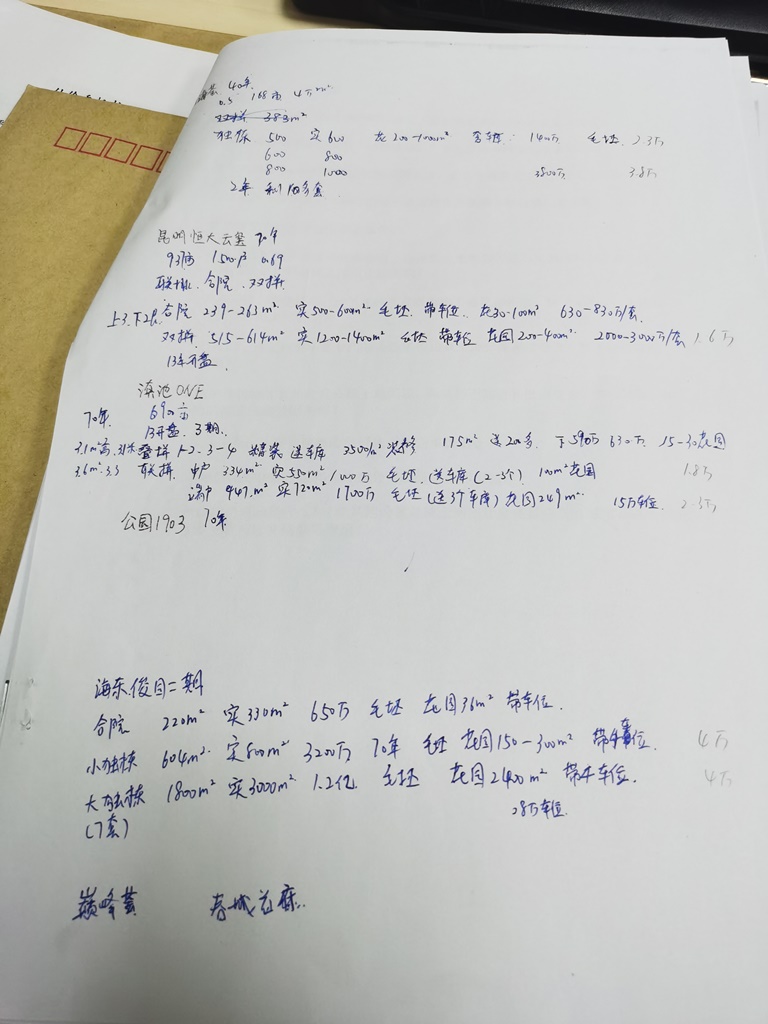 40年
0.5 168亩 4万m²
双拼 383m²
独栋 500 实600 花200-1000m² 含车库: 1400万 毛坯 2.3万
600 800
800 1000 3800万 3.8万
2年
昆明恒大云玺 70年
937亩 1500户 0.69
联排、合院、双拼
上3.下2层 合院 239-263m² 实500-600m² 毛坯 带车位 花30-100m² 630-830万/套
双拼 515-614m² 实1200-1400m² 毛坯 带车位 花园200-400m² 2000-3000万/套 1.6万
13年开盘
滇池ONE
70年 690亩
13开盘. 3期..
3.1m高 叠拼 1-2.3-4 精装 送车库 3500/m² 装修 175m² 送200多 下590万 630万 15-30花园
3.6m 3.3 联排 中户 334m² 实550m² 1100万 毛坯 送车库(2-3个) 100m²花园 1.8万
端户 447m² 实720m² 1700万 毛坯(送3个车库)花园249m² 15万车位 2.3万
公园1903 70年
海东.俊园二期
合院 220m² 实330m² 650万 毛坯 花园36m² 带车位.
小独栋 604m² 实800m² 3200万 70年 毛坯 花园150-300m² 带车位. 4万
大独栋 1800m² 实3000m² 1.2亿 毛坯 花园2400m² 带车位. 4万
(7套) 28万车位
巅峰 春城